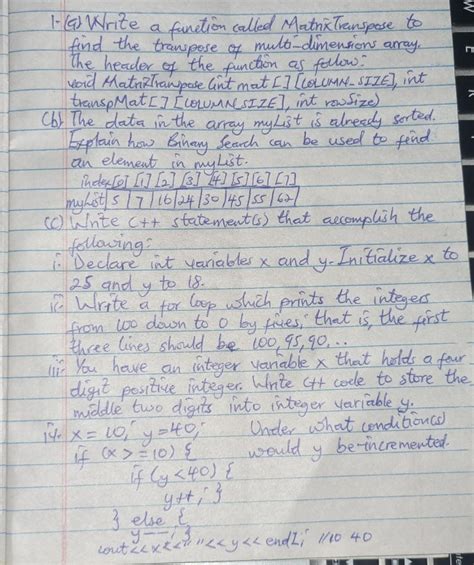 1-(a) Write a function called MatrixTranspose to
find the transpose of multi-dimensions array.
The header of the function as follow:
void MatrixTranspose (int mat [] [COLUMN_SIZE], int
transpMat [] [COLUMN_SIZE], int rowSize)
(b) The data in the array myList is already sorted.
Explain how Binary Search can be used to find
an element in myList.
index[0] [1] [2] [3] [4] [5] [6] [7]
myList 5 | 7 | 16 | 24 | 30 | 45 | 55 | 62
(c) Write C++ statement(s) that accomplish the
following:
i. Declare int variables x and y. Initialize x to
25 and y to 18.
ii. Write a for loop which prints the integers
from 100 down to 0 by fives; that is, the first
three lines should be 100, 95, 90...
iii. You have an integer variable x that holds a four
digit positive integer. Write C++ code to store the
middle two digits into integer variable y.
iv. x = 10; y = 40; Under what condition(s)
if (x >= 10) { would y be incremented.
if (y < 40) {
y++; }
} else {
y--; }
cout << x << " " << y << endl; //10 40